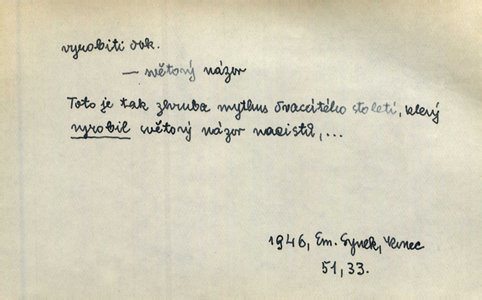 vyrobiti dok.
— světový názor
Toto je tak zhruba mythus dvacátého století, který
vyrobil světový názor nacistů, ...
1946, Em. Synek,
51, 33.